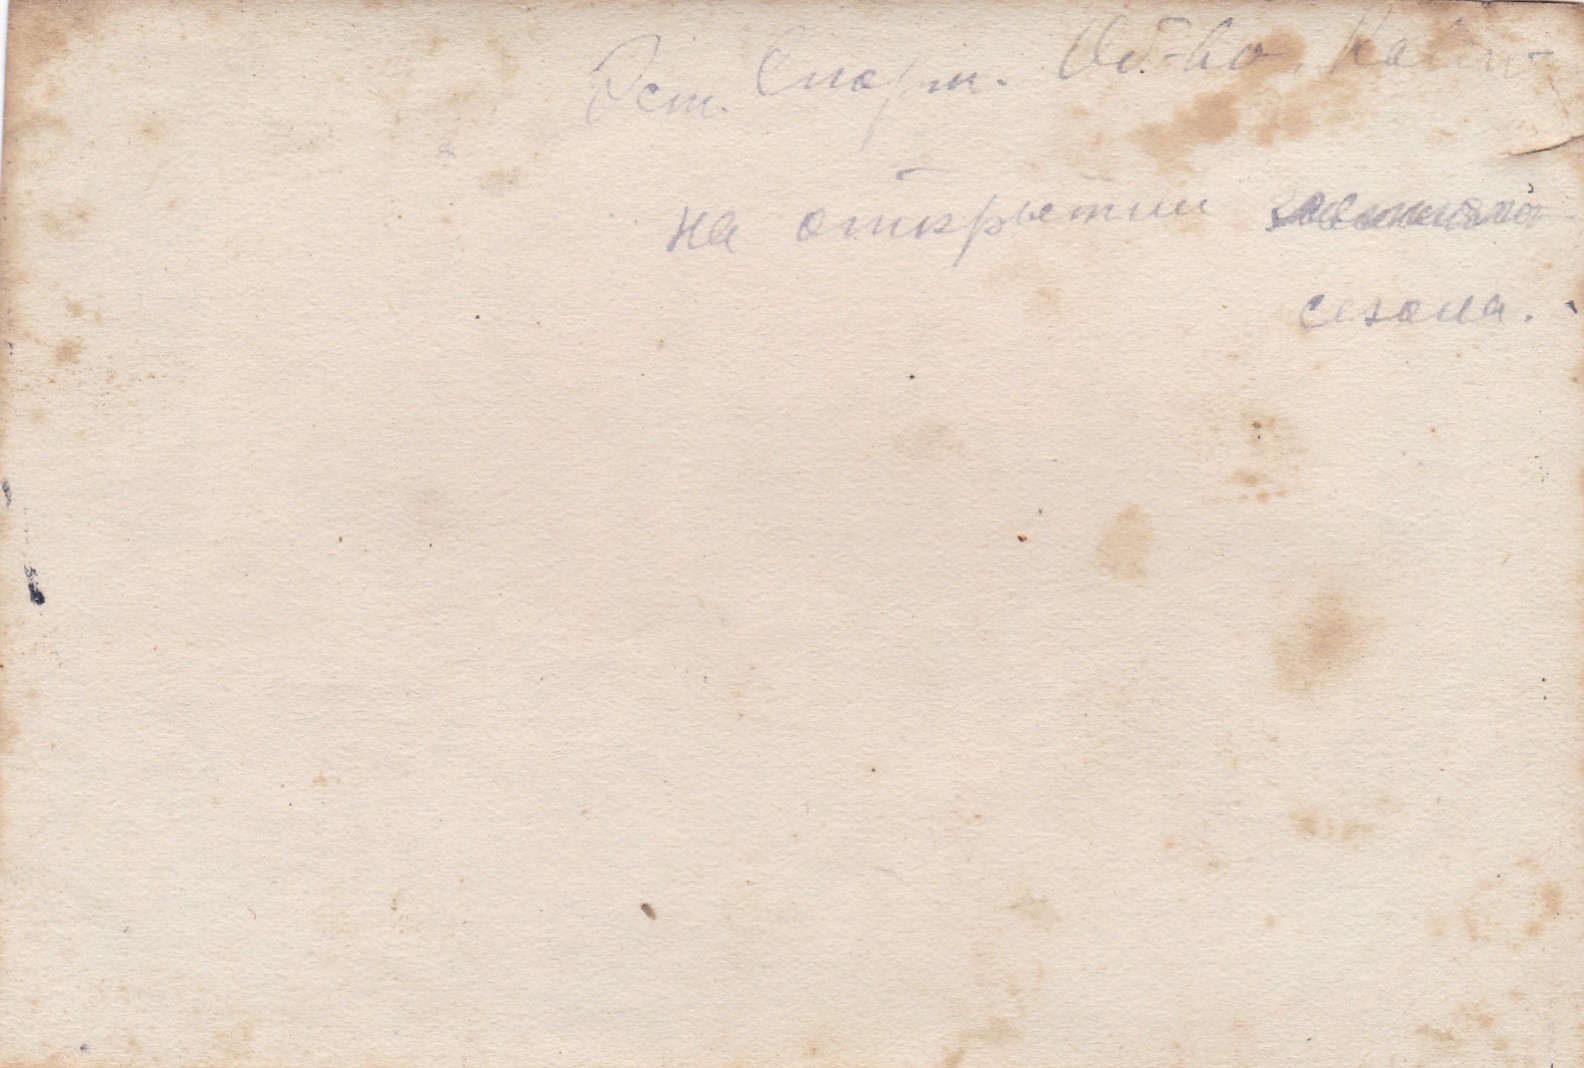 Эст. Спорт. Об-во
на открытии
сезона.